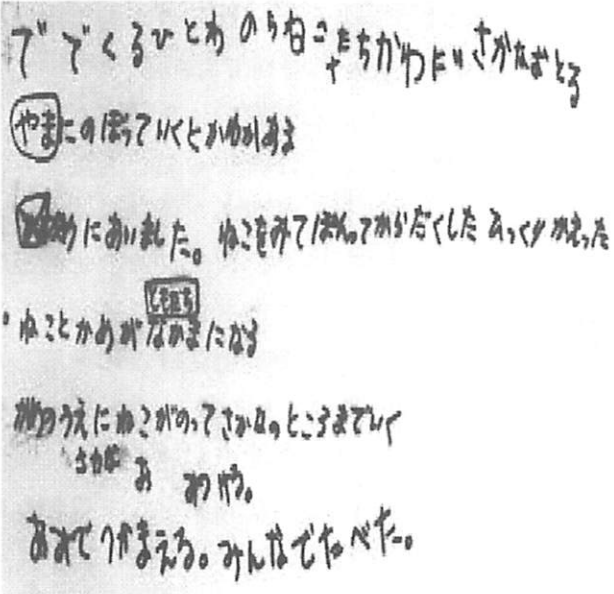 でてくるひとわ のらねこたちがわにいさかなおとる
やまにのぼっていくとかめがある
にあいました。ねこをみてぼんってからだくした ひっくりかえった
ねことかめがなかまになる
ともだち
かめのうえにねこがのってさかなのところまでいく
さかな お みつける。
あみでつかまえる。みんなでたべた。